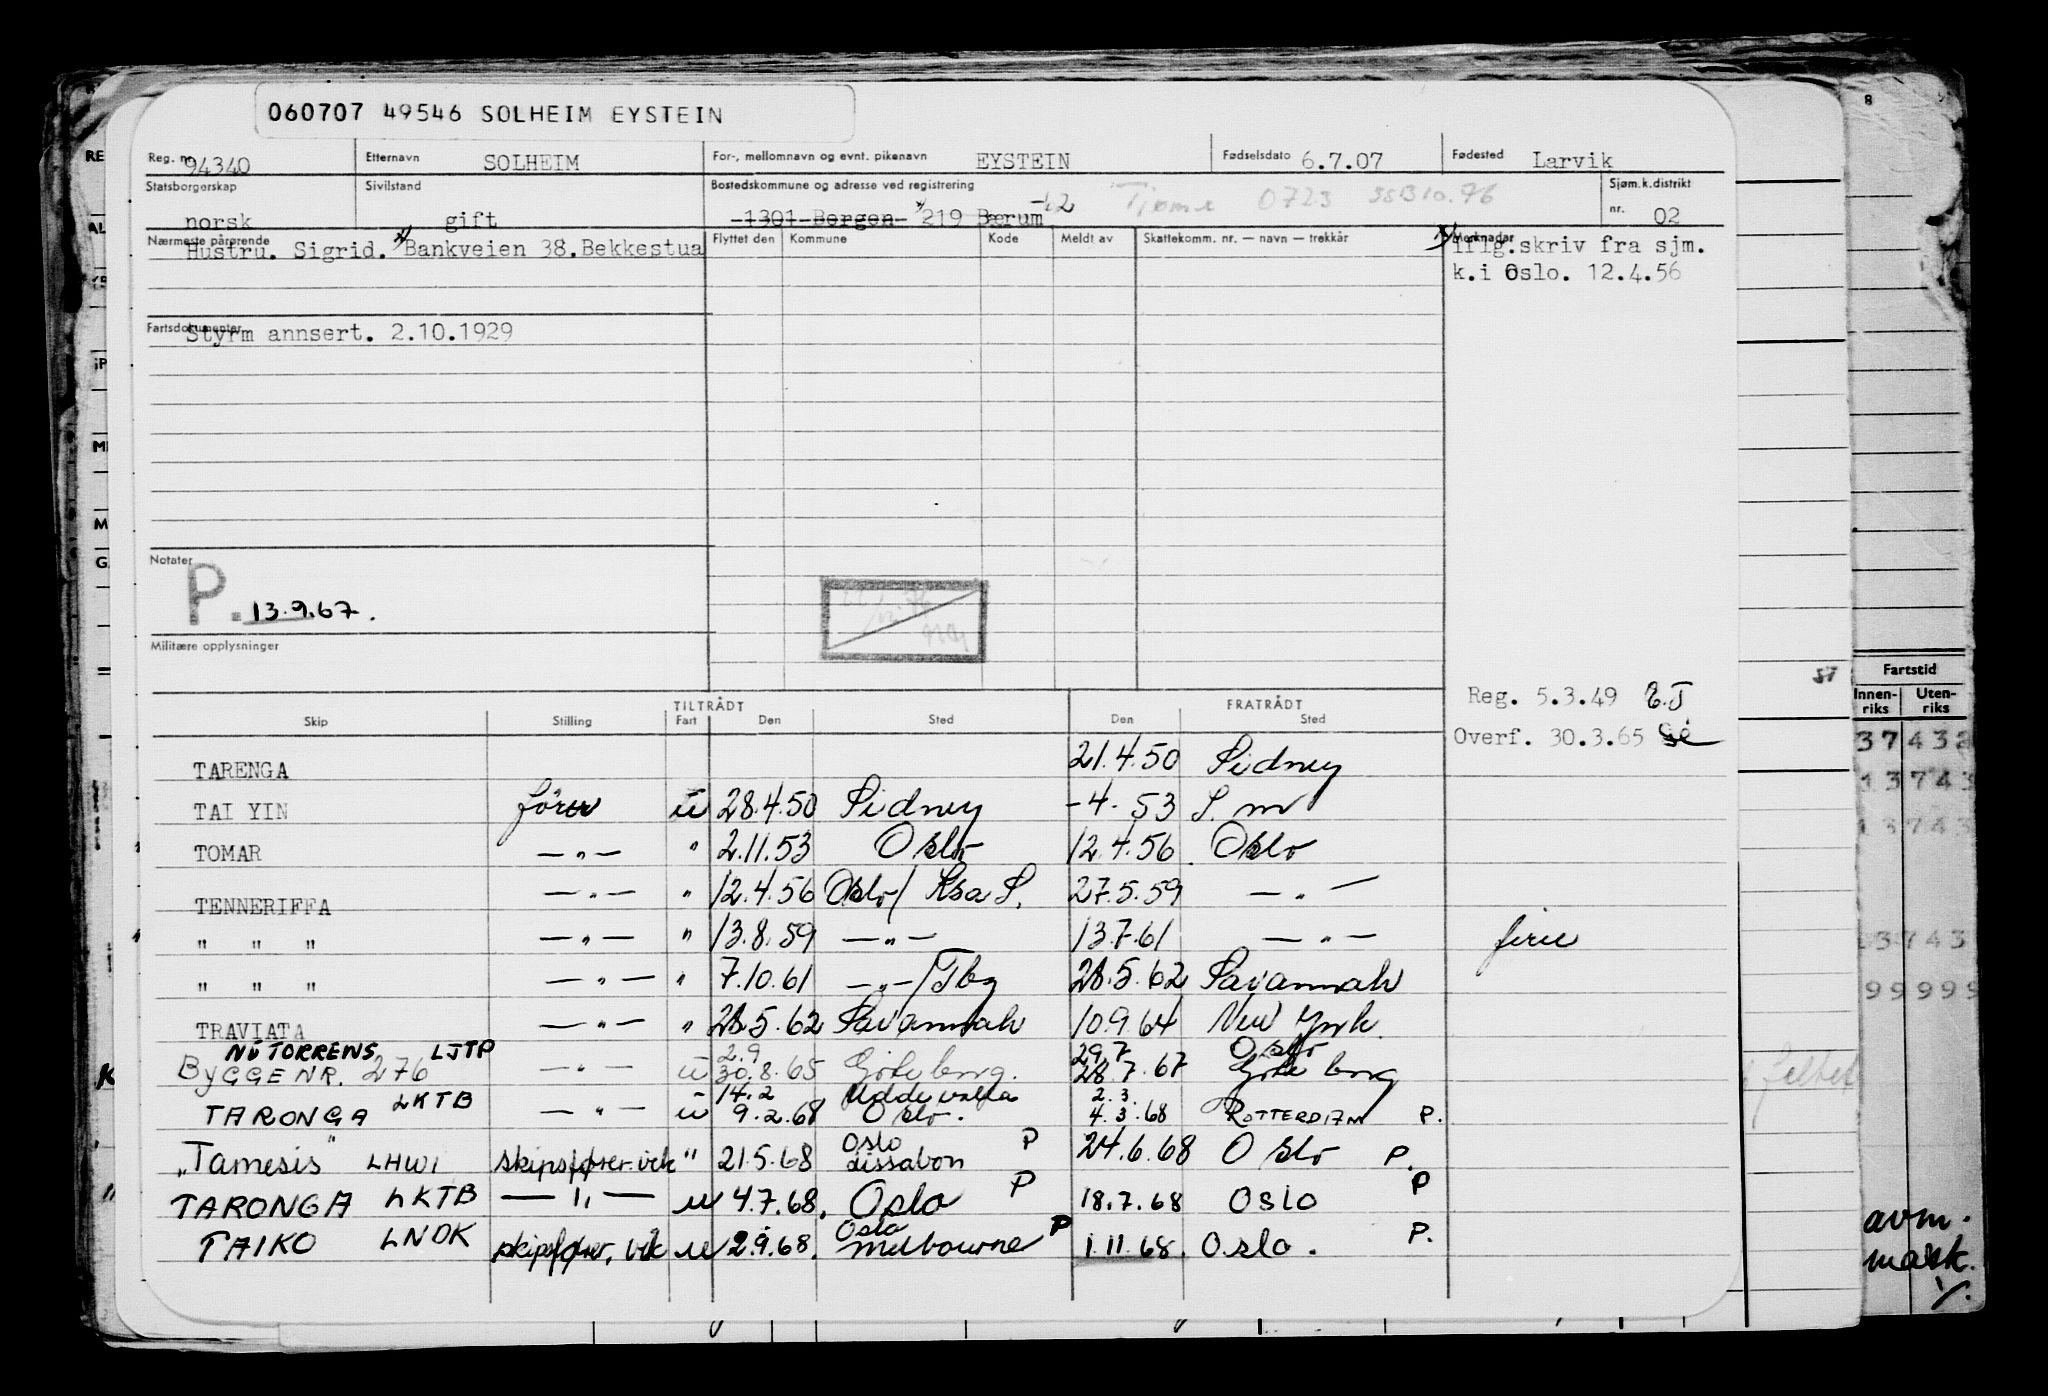 060707 49546 SOLHEIM EYSTEIN
Reg. nr. 94340 Etternavn SOLHEIM For-, mellomnavn og evnt. pikenavn EYSTEIN Fødselsdato 6.7.07 Fødested Larvik
Statsborgerskap norsk Sivilstand gift Bostedskommune og adresse ved registrering 1301 Bergen x) 219 Bærum Tjøme 0723 Sjøm.k.distrikt nr. 02
Nærmeste pårørende Flyttet den Kommune Kode Meldt av Skattekomm. nr. — navn — trekkår Merknader
Hustru. Sigrid. x) Bankveien 38.Bekkestua
x) iflg.skriv fra sjm.
k.i Oslo. 12.4.56
Fartsdokumenter
Styrm annsert. 2.10.1929
Notater
P. 13.9.67.
Militære opplysninger
Reg. 5.3.49
Overf. 30.3.65
TILTRÅDT FRATRÅDT
Skip Stilling Fart Den Sted Den Sted
TARENGA 21.4.50 Sidney
TAI YIN fører u 28.4.50 Sidney -4-53 S.m
TOMAR —"— " 2.11.53 Oslo 12.4.56. Oslo
TENNERIFFA —"— " 12.4.56 Oslo/ Ksa S. 27.5.59 —"—
" " " —"— " 13.8.59 —"— 13.7.61 —"— ferie
" " " —"— " 7.10.61 —"—/Tbg 28.5.62 Savannah
TRAVIATA —"— " 28.5.62 Savannah 10.9.64 New York
NÅ TORRENS LJTP 2.9 29.7 Oslo
BYGGE NR. 276 —"— u 30.8.65 Göteborg. 28.7.67 Göteborg
14.2 Uddevalla 2.3.
TARONGA LKTB —"— u 9.2.68 Oslo. 4.3.68 ROTTERDAM P.
Oslo P
"Tamesis" LHWI skipsfører vik " 21.5.68 Lissabon 24.6.68 Oslo P.
TARONGA LKTB —"— u 4.7.68. Oslo P 18.7.68 Oslo P
Oslo P
TAIKO LNOK skipsfører, vik u 2.9.68. Melbourne 1.11.68. Oslo. P.
Fartstid
Innen-riks Uten-riks
37 432
13 743
13 743
13743
99999
avm.
mask.